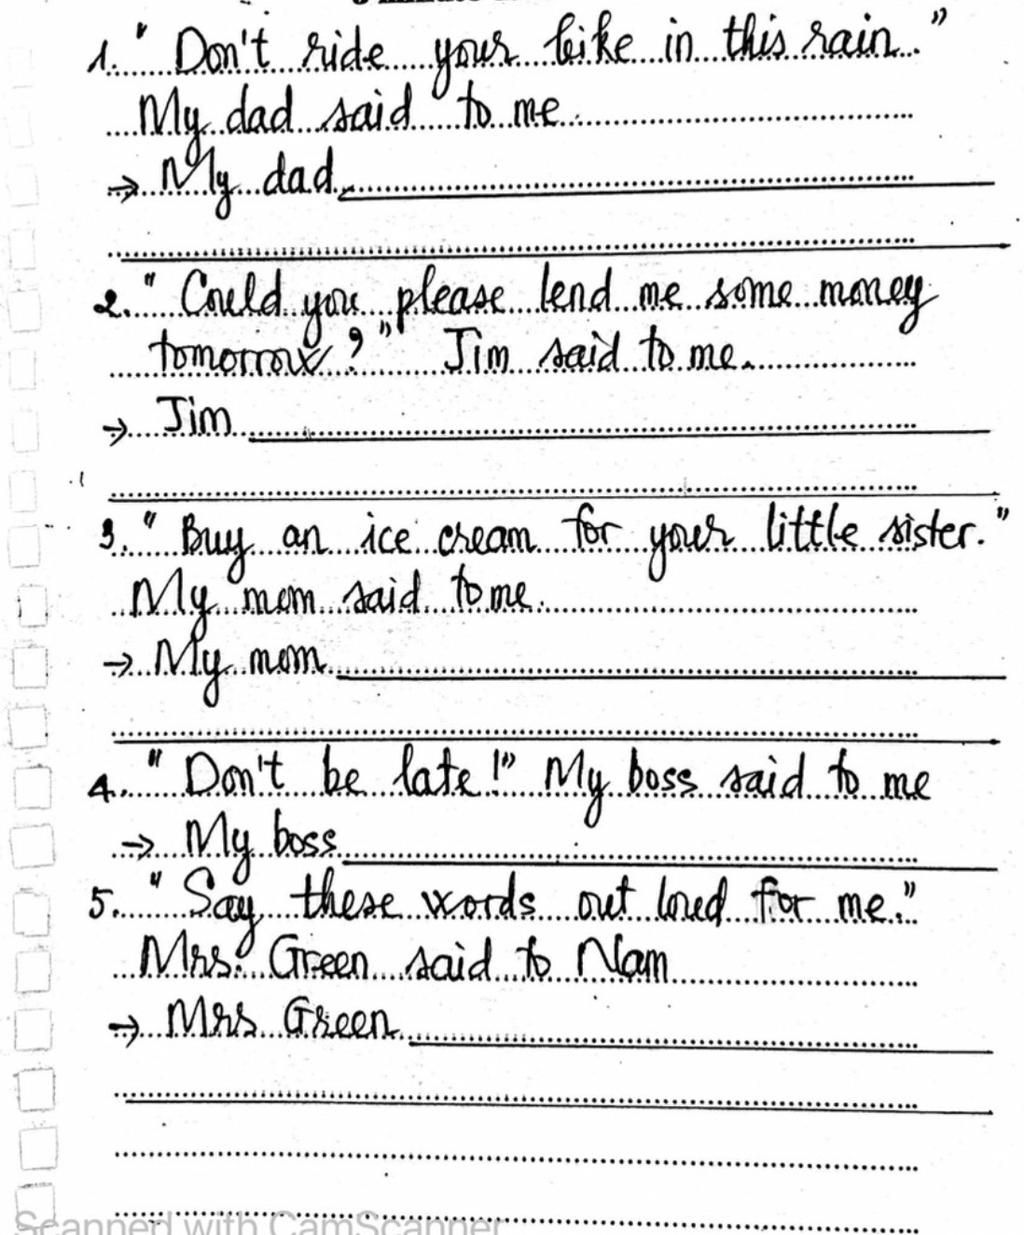 1. " Don't ride your bike in this rain."
My dad said to me.
→ My dad
2. " Could you please lend me some money
tomorrow?" Jim said to me.
→ Jim
3. " Buy an ice cream for your little sister."
My mom said to me.
→ My mom
4. " Don't be late!" My boss said to me
→ My boss
5. " Say these words out loud for me."
Mrs. Green said to Nam
→ Mrs Green
Scanned with CamScanner